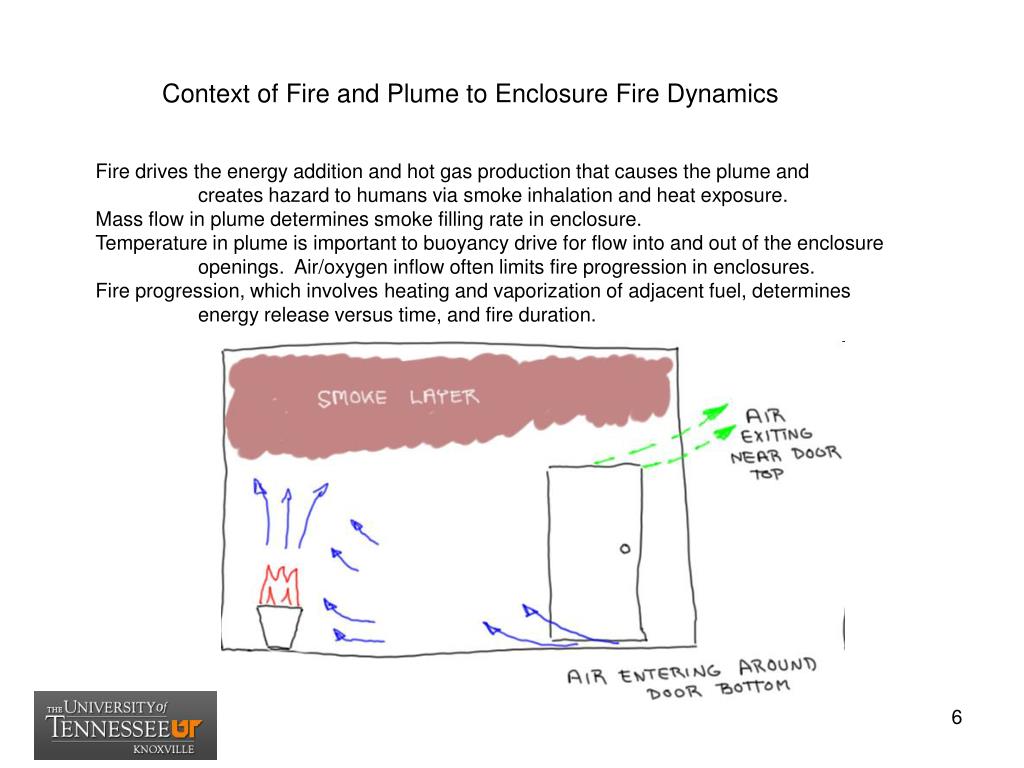 Context of Fire and Plume to Enclosure Fire Dynamics
Fire drives the energy addition and hot gas production that causes the plume and
creates hazard to humans via smoke inhalation and heat exposure.
Mass flow in plume determines smoke filling rate in enclosure.
Temperature in plume is important to buoyancy drive for flow into and out of the enclosure
openings.  Air/oxygen inflow often limits fire progression in enclosures.
Fire progression, which involves heating and vaporization of adjacent fuel, determines
energy release versus time, and fire duration.
SMOKE LAYER
AIR
EXITING
NEAR DOOR
TOP
AIR ENTERING AROUND
DOOR BOTTOM
THE UNIVERSITY of
TENNESSEE UT
KNOXVILLE
6